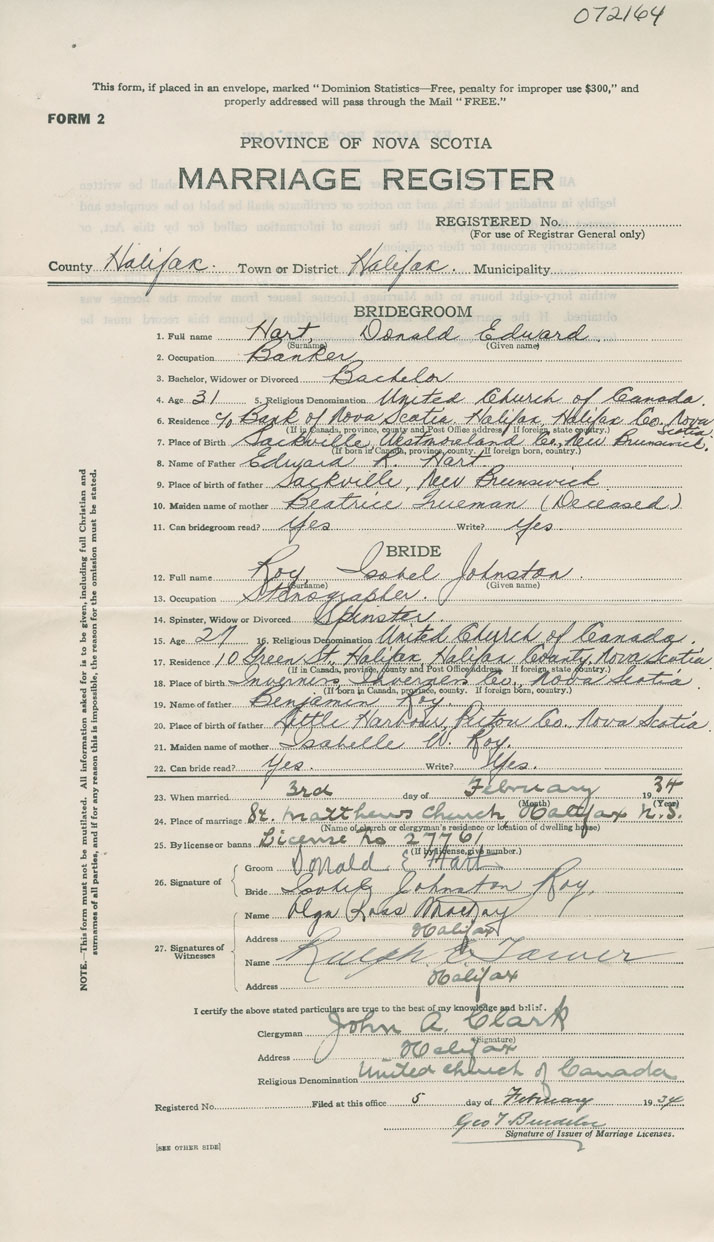 072164
This form, if placed in an envelope, marked "Dominion Statistics—Free, penalty for improper use $300," and
properly addressed will pass through the Mail "FREE."
FORM 2
PROVINCE OF NOVA SCOTIA
MARRIAGE REGISTER
REGISTERED No.
(For use of Registrar General only)
County Halifax. Town or District Halifax. Municipality
BRIDEGROOM
1. Full name Hart, Donald Edward.
(Surname) (Given name)
2. Occupation Banker
3. Bachelor, Widower or Divorced Bachelor
4. Age 31 5. Religious Denomination United Church of Canada.
6. Residence c/o Bank of Nova Scotia. Halifax, Halifax Co. Nova Scotia.
(If in Canada, province, county and Post Office address. If foreign, state country.)
7. Place of Birth Sackville, Westmoreland Co., New Brunswick.
(If born in Canada, province, county. If foreign born, country.)
8. Name of Father Edward R. Hart
9. Place of birth of father Sackville, New Brunswick
10. Maiden name of mother Beatrice Trueman (Deceased)
11. Can bridegroom read? Yes Write? Yes.
BRIDE
12. Full name Roy, Isobel Johnston.
(Surname) (Given name)
13. Occupation Stenographer.
14. Spinster, Widow or Divorced Spinster.
15. Age 27 16. Religious Denomination United Church of Canada.
17. Residence 10 Green St. Halifax Halifax County, Nova Scotia
(If in Canada, province, county and Post Office address. If foreign, state country.)
18. Place of Birth Inverness, Inverness Co., Nova Scotia.
(If born in Canada, province, county. If foreign born, country.)
19. Name of father Benjamin Roy.
20. Place of birth of father Little Harbour, Pictou Co. Nova Scotia.
21. Maiden name of mother Isabelle W. Roy.
22. Can bride read? Yes. Write? Yes.
23. When married 3rd day of February 1934
(Month) (Year)
24. Place of marriage St. Matthews Church, Halifax N.S.
(Name of church or clergyman's residence or location of dwelling house)
25. By license or banns License No 27761
(If by license, give number.)
26. Signature of
Groom Donald E Hart
Bride Isobel Johnston Roy.
27. Signatures of Witnesses
Name Olga Ross MacKay
Address Halifax
Name Ralph E. Tower
Address Halifax
I certify the above stated particulars are true to the best of my knowledge and belief.
Clergyman John A. Clark
(Signature)
Address Halifax
Religious Denomination United Church of Canada
Registered No. Filed at this office 5 day of February 1934
Geo T
Signature of Issuer of Marriage Licenses.
[SEE OTHER SIDE]
NOTE.—This form must not be mutilated. All information asked for is to be given, including full Christian and
surnames of all parties, and if for any reason this is impossible, the reason for the omission must be stated.